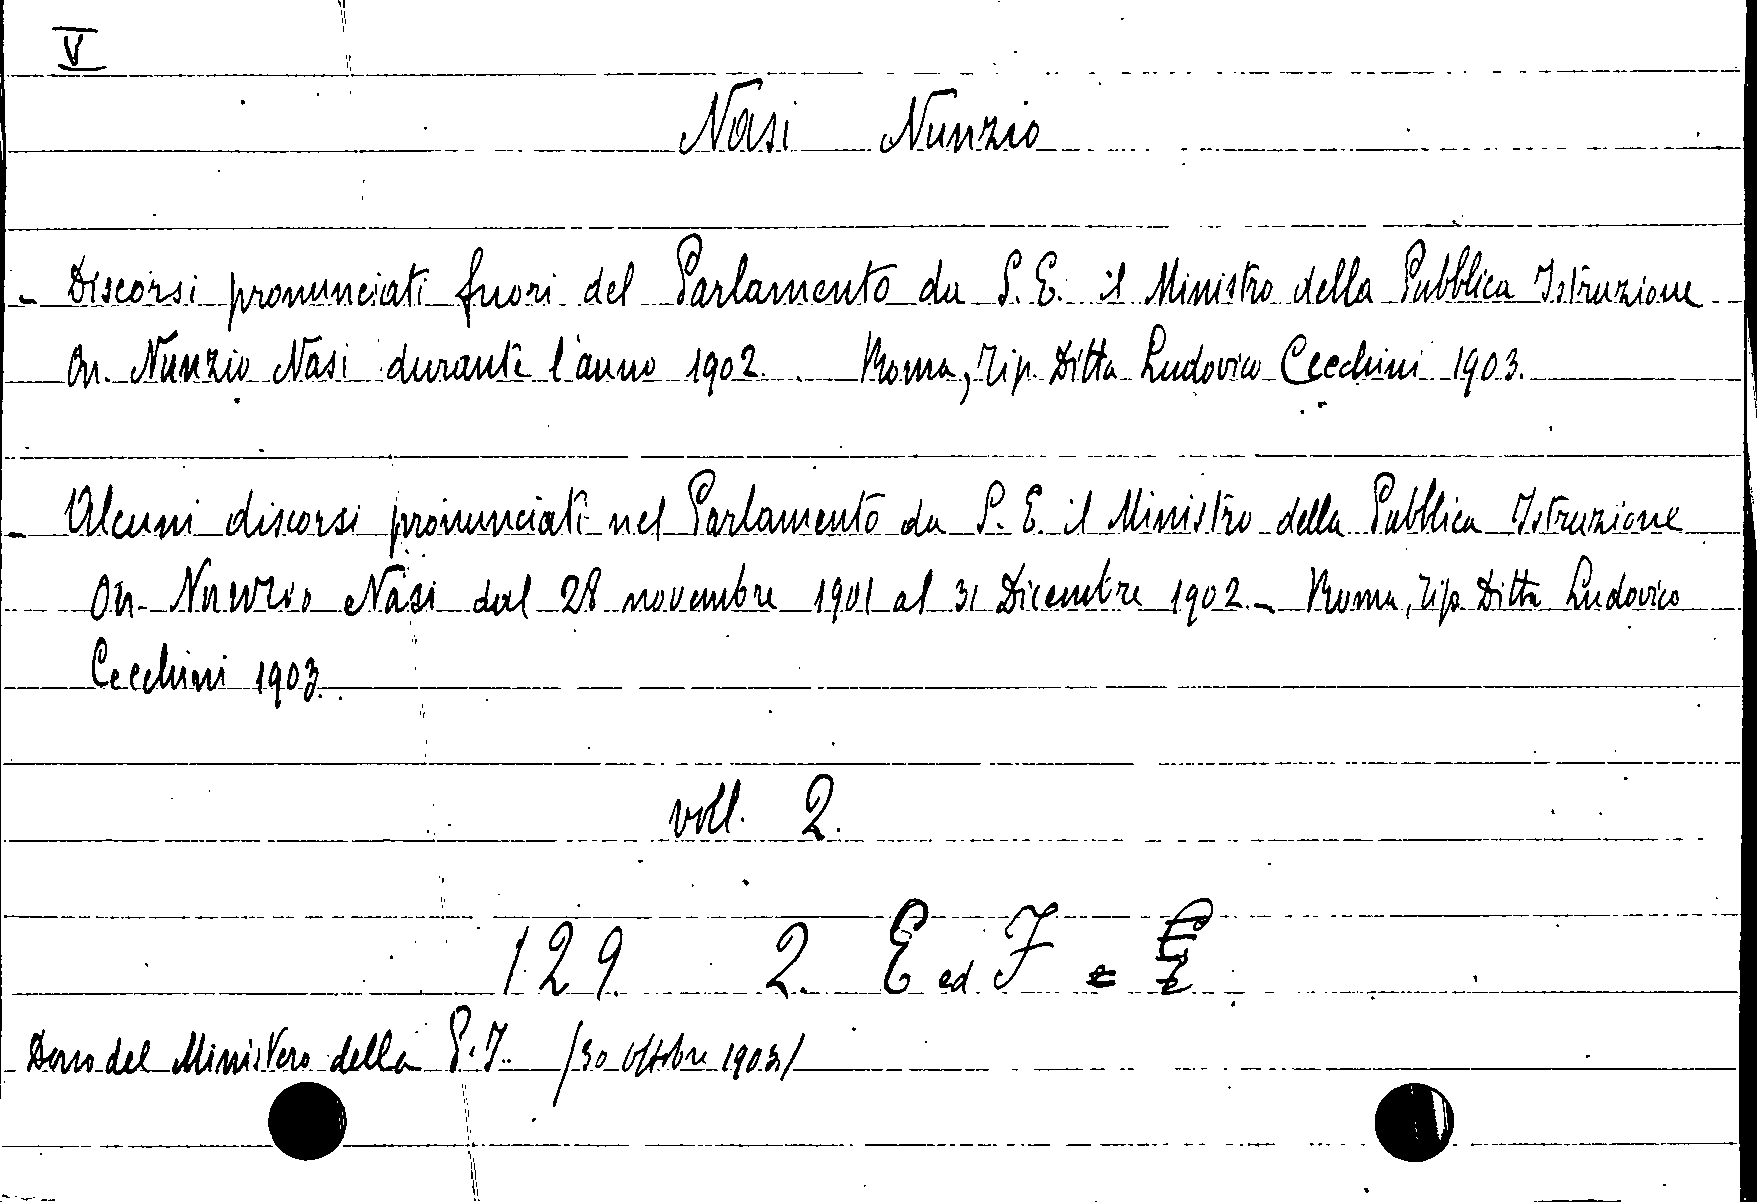 V
Nasi Nunzio
- Discorsi pronunciati fuori del Parlamento da S. E. il Ministro della Pubblica Istruzione
On. Nunzio Nasi durante l'anno 1902. Roma, Tip. Ditta Ludovico Cecchini 1903.
- Alcuni discorsi pronunciati nel Parlamento da S. E. il Ministro della Pubblica Istruzione
On. Nunzio Nasi dal 28 novembre 1901 al 31 Dicembre 1902 - Roma, Tip. Ditta Ludovico
Cecchini 1903.
voll. 2.
129. 2. E ed F
Dono del Ministero della P. I. /30 ottobre 1903/